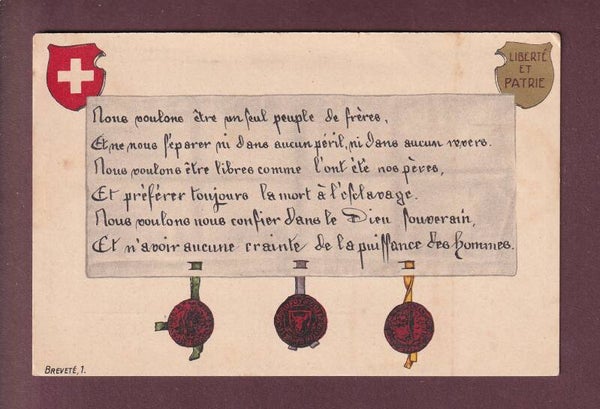 LIBERTÉ
ET
PATRIE
Nous voulons être un ſeul peuple de frères,
Et ne nous ſéparer ni dans aucun péril, ni dans aucun revers.
Nous voulons être libres comme l'ont été nos pères,
Et préférer toujours la mort à l'eſclavage.
Nous voulons nous confier dans le Dieu ſouverain,
Et n'avoir aucune crainte de la puiſſance des hommes.
BREVETÉ, 1.